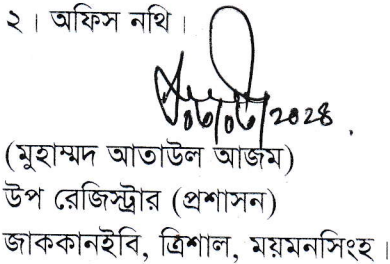 ২। অফিস নথি।
(মুহাম্মদ আতাউল আজম)
উপ রেজিস্ট্রার (প্রশাসন)
জাককানইবি, ত্রিশাল, ময়মনসিংহ।